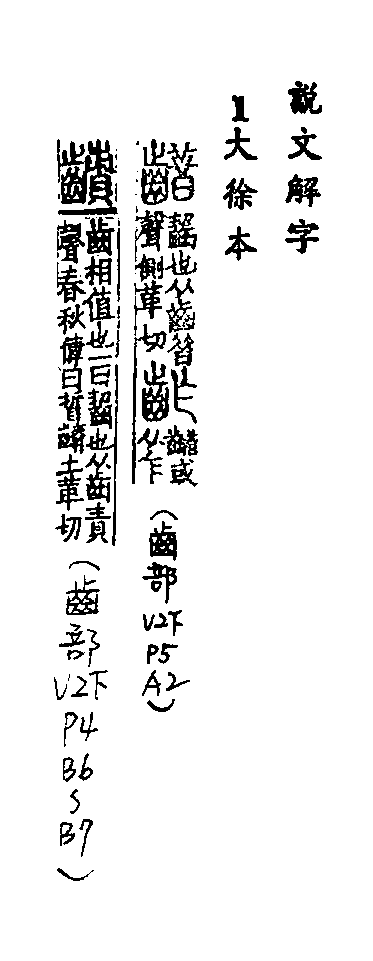 說文解字
1大徐本
齰齧也从齒昔聲側革切齚齰或从乍(齒部V2下P5A2)
䶦齒相值也一曰齧也从齒責聲春秋傳曰晳䶦士革切(齒部V2下P4B6sB7)